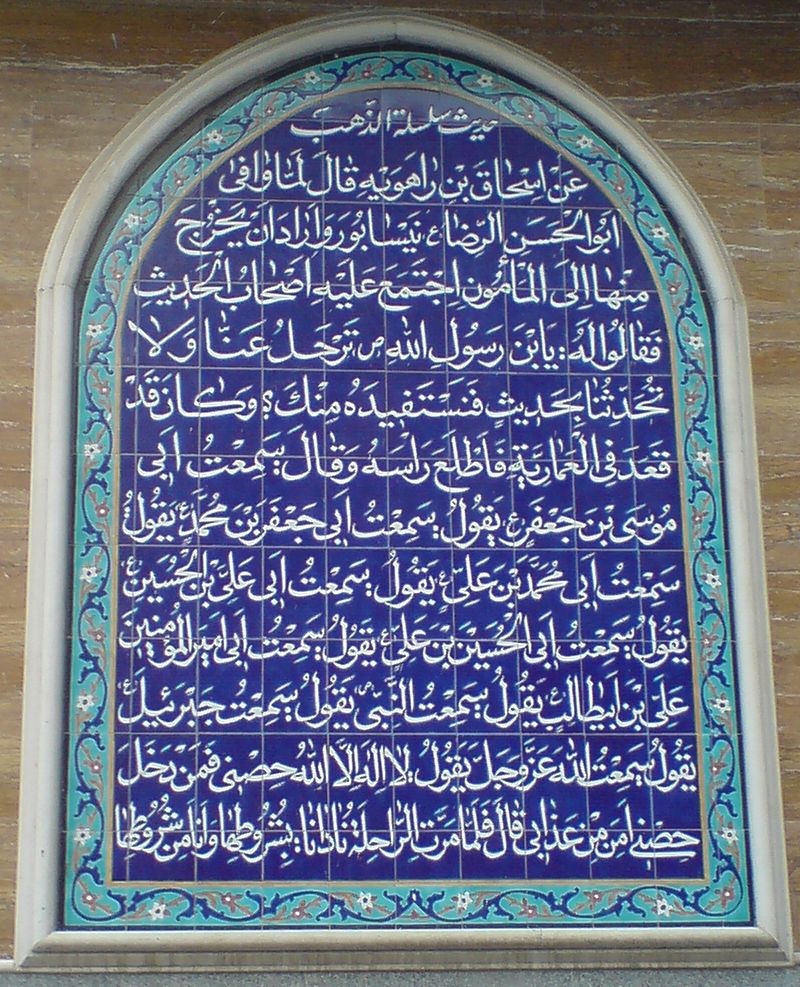 حدیث سلسلة الذّهب
عَنْ اِسْحاق بْنِ راهَوَیْهِ قالَ لَمّا وافی
اَبُوالْحَسَنِ الرِّضا ع نَیْسابُورَ وَاَرادَ اَنْ یَخْرُجَ
مِنْها اِلَی الْمَأْمُونِ اِجْتَمَعَ عَلَیْهِ اَصْحابُ الْحَدیثِ
فَقالُوا لَهُ: یَابْنَ رَسُولِ اللهِ ص تَرْحَلُ عَنّا وَلا
تُحَدِّثُنا بِحَدیثٍ فَنَسْتَفیدَهُ مِنْکَ؟ وَکانَ قَدْ
قَعَدَ فِی الْعَمّارِیَّةِ فَاَطْلَعَ رَاسَهُ وَقالَ: سَمِعْتُ اَبی
مُوسَی بْنَ جَعْفَرٍ ع یَقُولُ: سَمِعْتُ اَبی جَعْفَرَ بْنَ مُحَمَّدٍ ع یَقُولُ:
سَمِعْتُ اَبی مُحَمَّدَ بْنَ عَلِیٍّ ع یَقُولُ: سَمِعْتُ اَبی عَلِیَّ بْنَ الْحُسَیْنِ ع
یَقُولُ: سَمِعْتُ اَبِی الْحُسَیْنَ بْنَ عَلِیٍّ ع یَقُولُ: سَمِعْتُ اَبی اَمیرَالْمُؤْمِنینَ
عَلِیَّ بْنَ اَبیطالِبٍ یَقُولُ: سَمِعْتُ النَّبِیَّ ص یَقُولُ: سَمِعْتُ جَبْرَئیلَ ع
یَقُولُ: سَمِعْتُ اللهَ عَزَّوَجَلَّ یَقُولُ: لا اِلهَ اِلَّا اللهُ حِصْنی فَمَنْ دَخَلَ
حِصْنی اَمِنَ مِنْ عَذابی قالَ فَلَمّا مَرَّتِ الرّاحِلَةُ نادانا: بِشُرُوطِها وَاَنَا مِنْ شُرُوطِها